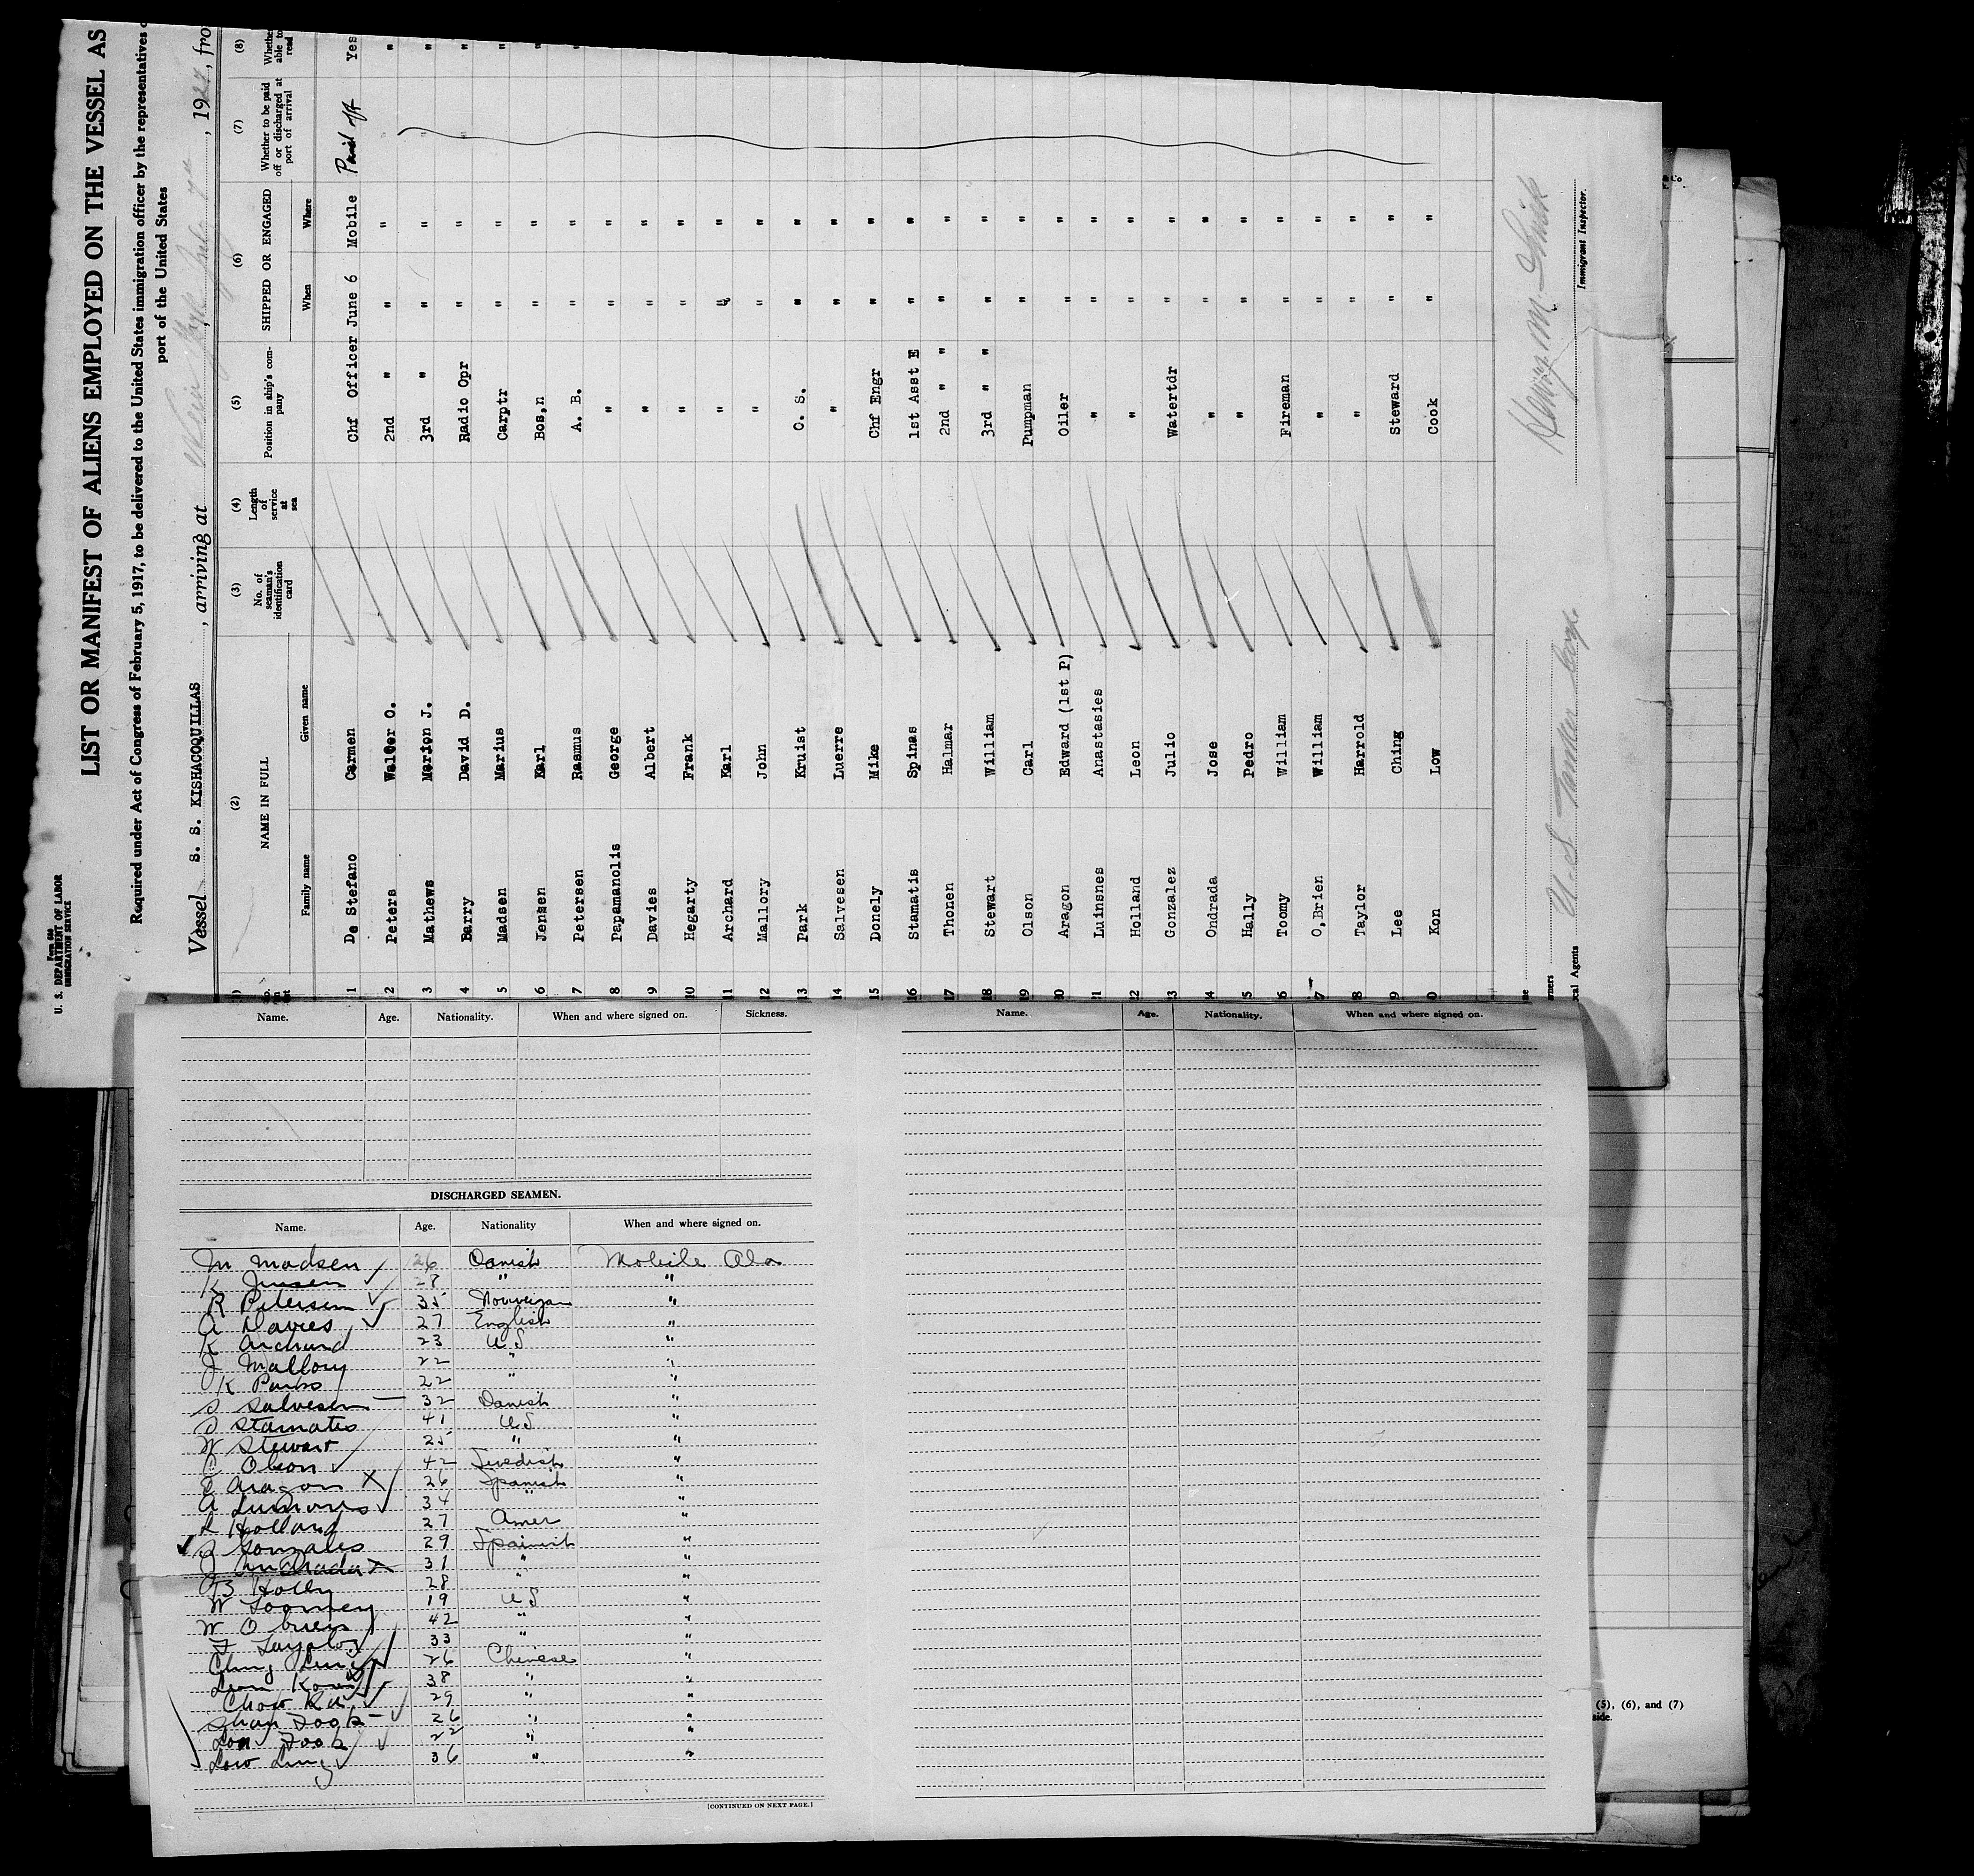 Form 680
U. S. DEPARTMENT OF LABOR
IMMIGRATION SERVICE
LIST OR MANIFEST OF ALIENS EMPLOYED ON THE VESSEL AS
Required under Act of Congress of February 5, 1917, to be delivered to the United States immigration officer by the representatives
port of the United States
Vessel S. S. KISHACOQUILLAS, arriving at New York, 1927, fro
(2) (3) (4) (5) (6) (7) (8)
NAME IN FULL No. of seaman's identification card Length of service at sea Position in ship's company SHIPPED OR ENGAGED Whether to be paid off or discharged at port of arrival Whether able to read
Family name Given name When Where
1 De Stefano Carmen Chf Officer June 6 Mobile Paid off Yes
2 Peters Walter O. 2nd " " " "
3 Mathews Marion J. 3rd " " " " "
4 Barry David D. Radio Opr " " " "
5 Madsen Marius Carptr " " "
6 Jensen Karl Bos,n " " "
7 Petersen Rasmus A. B. " " "
8 Papamanolis George " " "
9 Davies Albert " " "
10 Hegarty Frank " " "
11 Archard Karl " " "
12 Mallory John " " "
13 Park Kruist O. S. " "
14 Salvesen Luerre " " "
15 Donely Mike Chf Engr " "
16 Stamatis Spinas 1st Asst E " "
17 Thonen Halmar 2nd " " " "
18 Stewart William 3rd " " " "
19 Olson Carl Pumpman " "
20 Aragon Edward (1st P) Oiler " "
21 Luinsnes Anastasies " " "
22 Holland Leon " " "
23 Gonzalez Julio Watertdr " "
24 Ondrada Jose " " "
5 Hally Pedro " " "
6 Toomy William Fireman " "
7 O,Brien William " " "
8 Taylor Harrold " " "
9 Lee Ching Steward " "
0 Kon Low Cook " "
owners U. S. Tanker Corp.
ocal Agents
Henry M.
Immigrant Inspector.
Name. Age. Nationality. When and where signed on. Sickness.
Name. Age. Nationality. When and where signed on.
DISCHARGED SEAMEN.
Name. Age. Nationality When and where signed on.
M Madsen 26 Danish Mobile Ala
K Jensen 28 " "
R Petersen 35 Norweigan "
A Davies 27 English "
K Archard 23 U S "
J Mallory 22 " "
K Parks 22 " "
S Salvesen 32 Danish "
S Stamates 41 U S "
W Stewart 25 " "
C Olson 42 Swedish "
E Aragon X 26 Spanish "
A 34 " "
L Holland 27 Amer "
J Gonzales 29 Spanish "
J X 31 " "
Holly 28 " "
W Toomey 19 U S "
W O brien 42 " "
Taylor 33 " "
Ching 26 Chinese "
38 " "
Chow 29 " "
Fook 26 " "
Fook 22 " "
Low Ling 36 " "
[CONTINUED ON NEXT PAGE.]
(5), (6), and (7)
side.